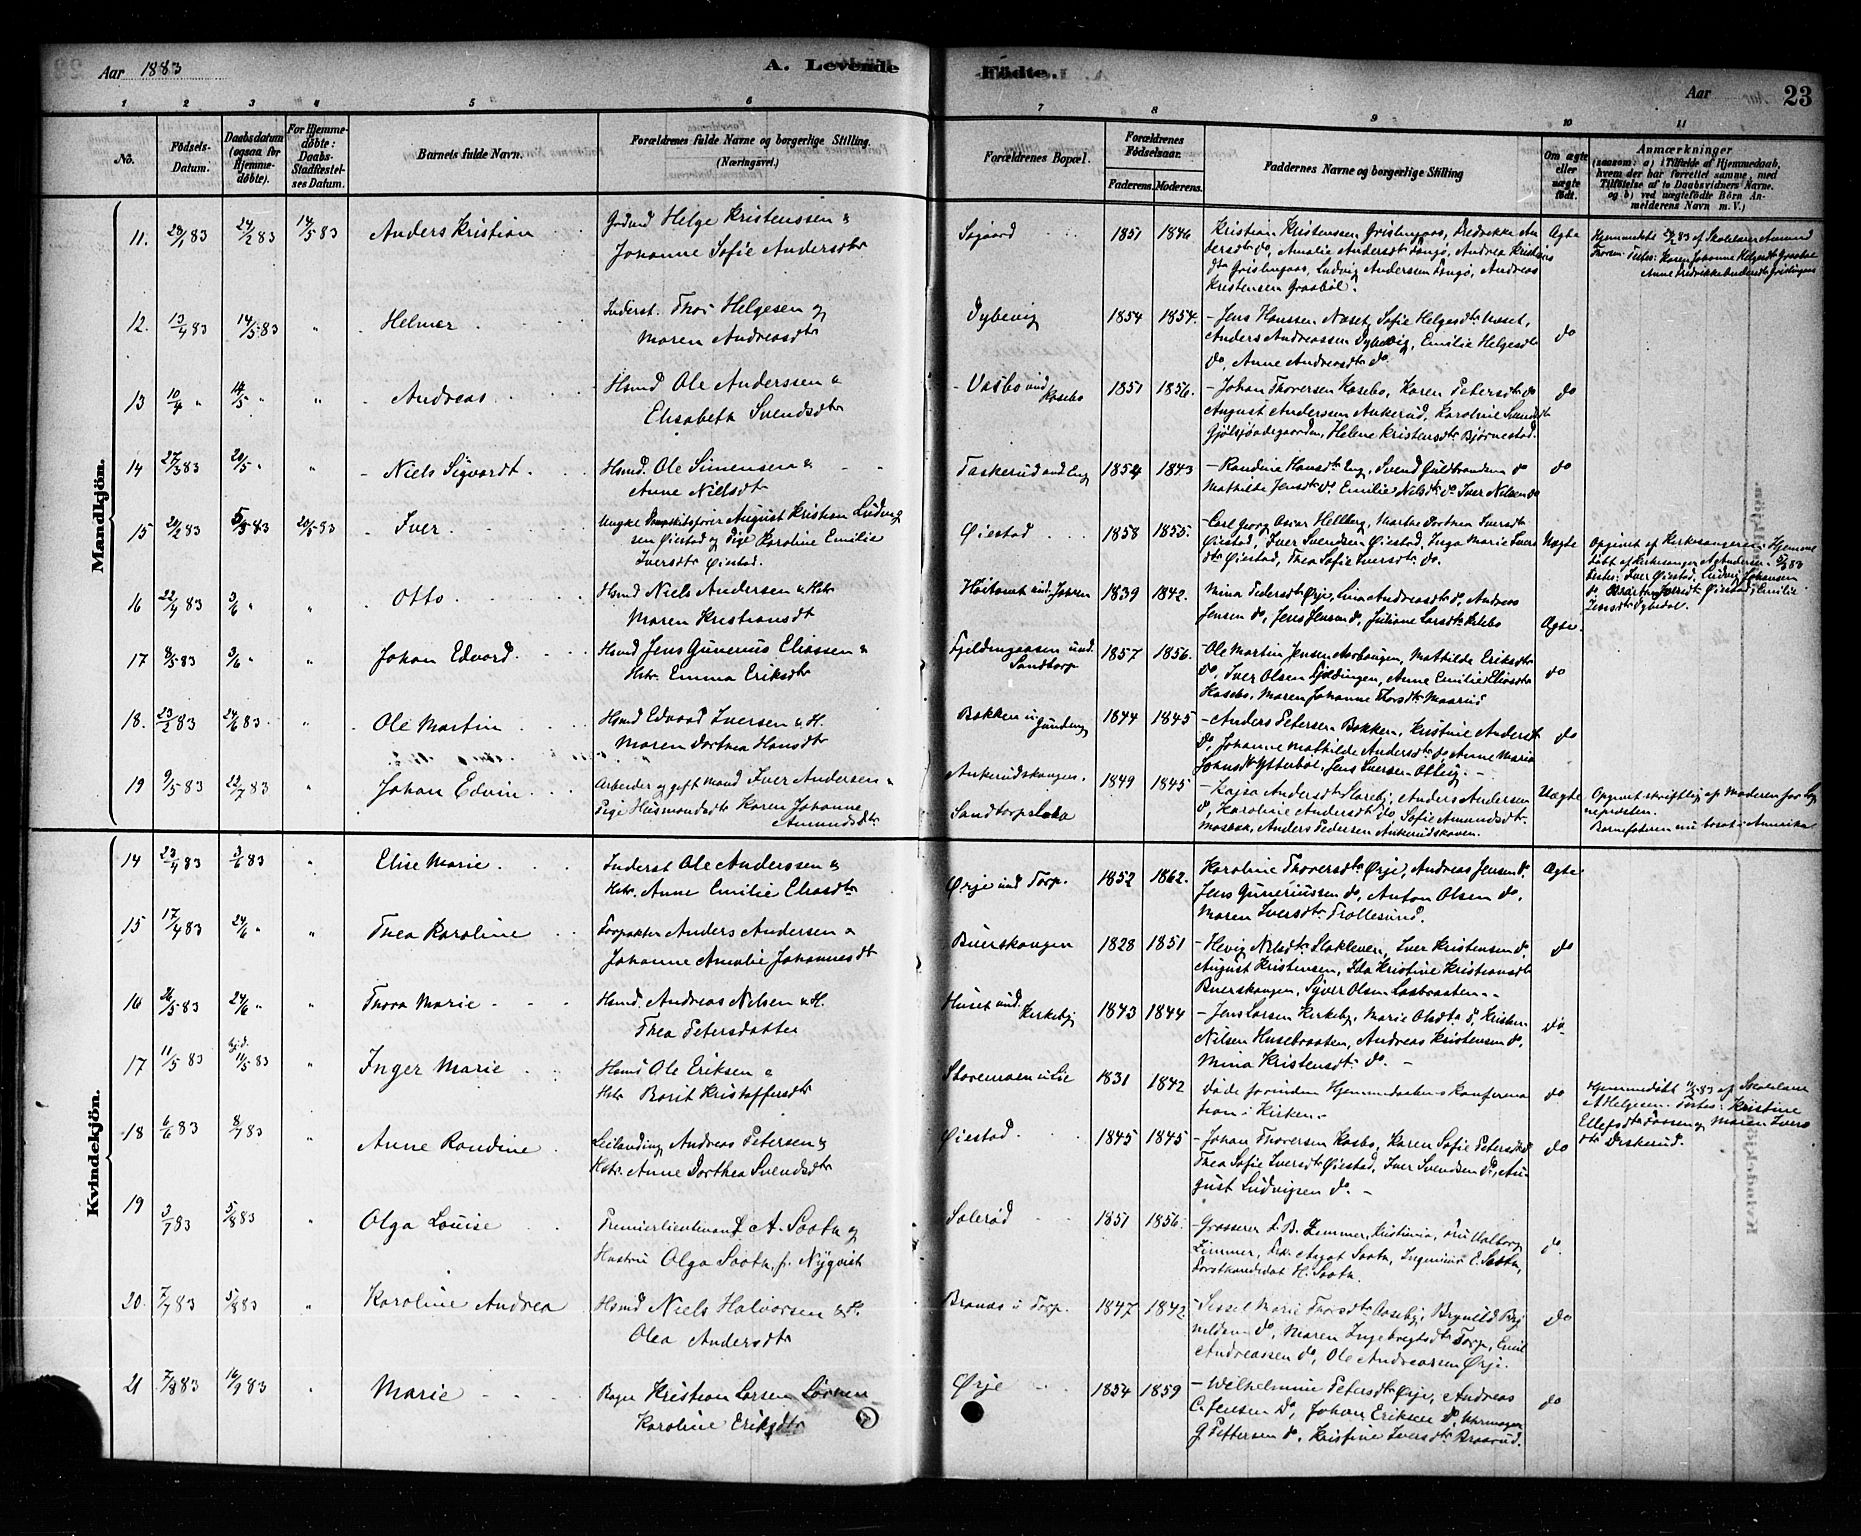 Aar 1883
A. Levende
Fødte.
Aar
23
1 2 3 4 5 6 7 8 9 10 11
No.
Fødsels-
Datum.
Daabsdatum
(ogsaa for
Hjemme-
døbte).
For Hjemme-
døbte:
Daabs-
Stadfæstel-
ses Datum.
Barnets fulde Navn.
Forældrenes fulde Navne og borgerlige Stilling.
(Næringsvei.)
Forældrenes Bopæl.
Forældrenes
Fødselsaar.
Faderens. Moderens.
Faddernes Navne og borgerlige Stilling
Om ægte
eller
uægte
født.
Anmærkninger
(saasom: a) i Tilfælde af Hjemmedaab,
hvem der har forrettet samme, med
Tilføielse af to Daabsvidners Navne,
og b) ved uægtefødte Børn An-
melderens Navn m. V.)
Mandkjön.
11. 28/1 83 24/2 83 14/5 83 Anders Kristian
Helge Kristenssen &
Johanne Sofie Andersdtr
Søgaard 1851 1846
Kristian Kristenssen Grislingaas, Fredrikke An
dersdtr do, Amalie Andersdtr Tangø, Andrea Kristens
dtr Grislingaas, Ludvig Andersen Tangø, Andreas
Kristensen Graabøl.
Ægte
12. 13/4 83 14/5 83 " Helmer
Inderst. Thor Helgesen og
Maren Andreasdtr
Dybevig 1854 1854.
Jens Hanssen Næset, Sofie Helgesdtr Næset,
Anders Andreassen Dybevig, Emilie Helgesdtr
do, Anne Andreasdtr do
do
13 10/4 " 14/5 " " Andreas
Hsmd Ole Anderssen &
Elisabeth Svendsdtr
Vasbo und Kasebo 1851 1856.
Johan Thoresen Kasebo, Karen Petersdtr do
August Anderssen Ankerud, Karoline Svendsdtr
Gjølsjøødegaarden, Helene Kristensdtr Bjørnestad.
do
14 27/3 83 20/5 " " Niels Sigvardt
Hsmd. Ole Simensen &
Anne Nielsdtr
Taskerud und Eng 1854 1843
Randine Hansdtr Eng, Svend Guldbrandsen do
Mathilde Jensdtr do Emilie Nilsdtr do Iver Nilsen do
do
15 24/2 83 5/3 83 20/5 83 Iver
Ungkl August Kristian Ludvig
sen Øiestad og Pige Karoline Emilie
Iversdtr Øiestad.
Øiestad 1858 1855.
Carl Georg Oscar Hellberg, Marthe Dortnea Iversdtr
Øiestad, Iver Svendsen Øiestad, Inga Marie Ivers
dtr Øiestad, Thea Sofie Iversdtr do.
Uægte
Opgivet af Kirkesangeren. Hjemme
døbt af Kirkesanger A. Andersen 5/3 83
16 22/4 83 3/6 " " Otto
Hsmd Niels Andersen & Hstr
Maren Kristiansdtr
1839 1842.
Mina Pedersdtr Ørje, Lina Andreasdtr do, Andreas
Jensen do, Jens Jensen do, Juliane Larsdtr
Ægte.
17 8/5 83 3/6 " " Johan Edvard
Hsmd Jens Gunerius Eliassen &
Hstr. Emma Eriksdtr
Fjeldingaasen und.
Sandtorp 1857 1856.
Ole Martin Jensen Aarhaugen, Mathilde Eriksdtr
do, Iver Olsen Fjeldingen, Anne Emilie Eliasdtr
Kasebo, Maren Johanne Thorsdtr
do
18. 23/2 83 24/6 83 " Ole Martin
Hsmd Edvard Iversen & H.
Maren Dortnea Hansdtr
Bakken u 1844 1845
Anders Petersen Bakken, Kristine Andersdtr
do, Johanne Mathilde Andersdtr do, Anne Maria
Johnsdtr Ytterbøl, Jens Iversen Otteig.
do
19 9/5 83 22/7 83 " Johan Edvin
Arbeider og gift Mand Iver Andersen &
Pige Husmandsdtr Karen Johanne
Amundsdtr.
Ankerudskaugen.
Sandtorpsløkka 1849 1845
Kajsa Andersdtr Slareby, Anders Andersen
do, Karoline Andersdtr do, Sofie Amundsdtr
Mosbæk, Anders Pedersen Ankerudskoven.
Uægte
Opgivet skriftlig af Moderen for Sog
nepræsten.
Barnefaderen nu bosat i Amerika
Kvindekjön.
14 23/4 83 3/6 83 " Elise Marie
Inderst Ole Anderssen &
Hstr. Anne Emilie Eliasdtr
Ørje und Torp. 1852 1862.
Karoline Thoresdtr Ørje, Andreas Jensen do.
Jens Guneriussen do, Anton Olsen do.
Maren Iversdtr Trollesund.
Ægte
15 17/4 83 24/6 " " Thea Karoline
Forpakter Anders Andersen &
Johanne Amalie Johannesdtr
Buerskaugen 1828 1851
Hevig Nilsdtr Slokleven, Iver Kristensen do.
August Kristensen, Ida Kristine Kristiansdtr
Buerskaugen, Syver Olsen Lasbraaten.
do
16 26/5 83 24/6 " " Thora Marie
Hsmd. Andreas Nilsen & H.
Thea Petersdatter
Huset und.
Kirkeby 1843 1844
Jens Larsen Kirkeby, Marie Olsdtr do, Kristen
Nilsen Husebraaten, Andreas Kristensen do,
Mina Kristensdtr do.
do
17 11/5 83 11/5 83 " Inger Marie
Hsmd Ole Eriksen &
Hstr Borit Kristoffersdtr
Storemoen u Lie 1831 1842
Døde forinden Hjemmedaabens Konferma
tion i Kirken.
do
Hjemmedøbt 11/5 83 af Skolelærer
A. Helgesen. Testes: Kristine
Ellefsdtr Fossen og Maren Ivers
dtr Dæskerud.
18 6/6 83 8/7 83 " Anne Randine
Leilending Andreas Petersen &
Hstr. Anne Dorthea Svendsdtr
Øiestad 1845 1845
Johan Thoresen Kasbo, Karen Sofie Petersdtr do
Thea Sofie Iversdtr Øiestad, Iver Svendsen do, Au
gust Ludvigsen do.
do
19 3/7 83 5/8 83 " Olga Louise
Premierlieutenant A. Sooth og
Hustru Olga Sooth, f. Nyqvist
Solerød 1851 1856
Grosserer F. B. Zimmer, Kristiania, Fru Valborg
Zimmer, Frk. Aagot Sooth, Ingeniør E. Sooth,
Forstkandidat H. Sooth.
do.
20. 7/7 83 5/8 83 " Karoline Andrea
Hsmd Niels Halvorsen & H.
Olea Andersdtr
Brandsr u Torp. 1847 1842
Sessel Marie Thorsdtr Aaseby, Brynild Bry
nildsen do, Maren Ingebregtsdtr Torp, Emil
Andreassen do, Ole Andreassen Ørje.
do
21 7/8 83 16/9 83 " Marie
Bager Kristian Larsen
Karoline Eriksdtr
Ørje 1854 1859
Wilhelmine Petersdtr Ørje, Andreas
C. Jensen do, Johan Eriksen do, Uhrmager
G. Pettersen do, Kristine Iversdtr Braarud.
do